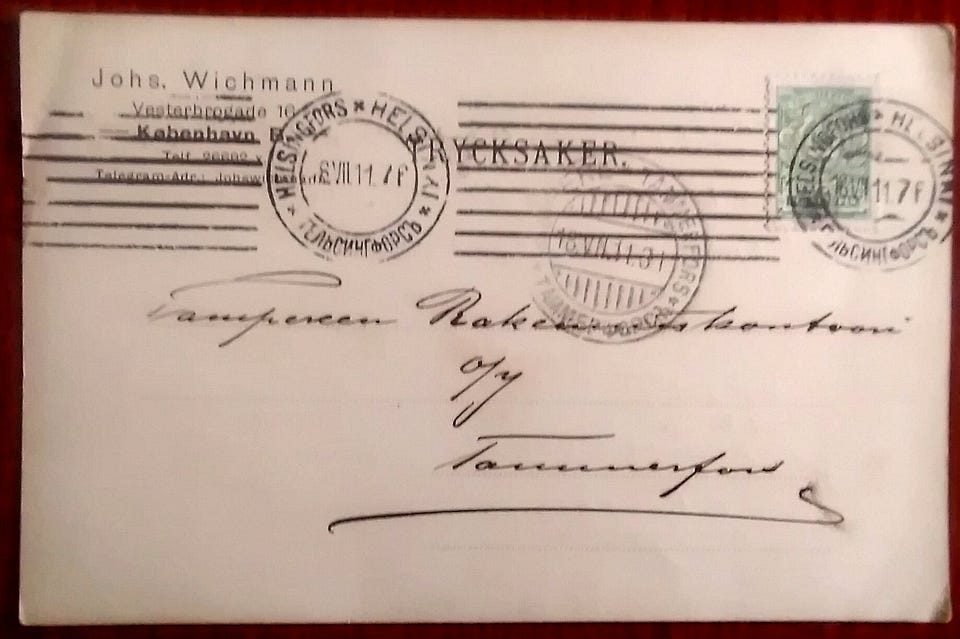 Johs. Wichmann
Vesterbrogade 16
København
Telf. 26682
Telegram-Adr.: Johswichmann
TRYCKSAKER.
HELSINGFORS * HELSINKI * ГЕЛЬСИНГФОРСЪ *
18.VII.11. 7 F
HELSINGFORS * HELSINKI * ГЕЛЬСИНГФОРСЪ
18.VII.11. 7 F
TAMMERFORS * ТАММЕРФОРСЪ
18.VII.11.
Tampereen Rakennuskonttori
o/y
Tammerfors